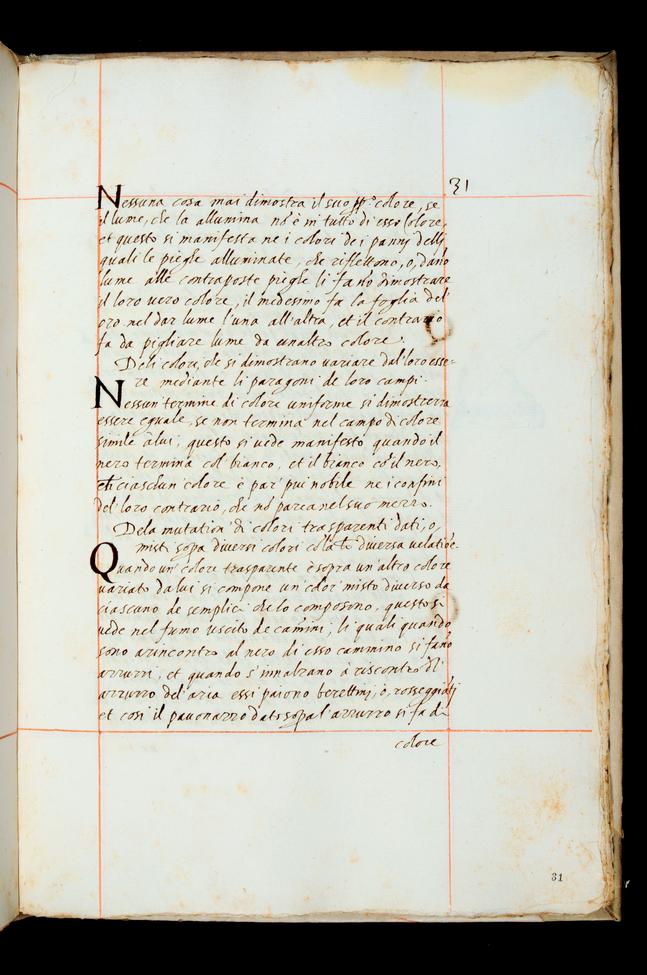 31
Nessuna cosa mai dimostra il suo ppº colore, se
il lume, che la allumina nõ è in tutto di esso Colore,
et questo si manifesta ne i colori de i panni delli
quali le pieghe alluminate, che riflettono, o, dano
lume alle contraposte pieghe li fanõ dimostrare
il loro uero colore, il medesimo fa la foglia del'
oro nel dar lume l'una all'altra, et il contrario
fa da pigliare lume da unaltro colore.
Deli colori, che si dimostrano uariare dal'loro esse-
re mediante li paragoni de loro campi.
Nessun'termine di colore uniforme si dimostrerra
essere eguale, se non termina nel campo di colore
simile à lui, questo si uede manifesto quando il
nero termina col' bianco, et il bianco cõ il nero,
che ciaschun' colore è par' piu nobile ne i confini
del' loro contrario, che nõ parea nel suo mezzo.
Dela mutation' di colori trasparenti dati, o,
misti sopa diuersi colori cola diuersa uelatiõe.
Quando un' colore trasparente è sopra un'altro colore
uariato da lui si compone un'color' misto diuerso da
ciascuno de semplici che lo composono. questo si
uede nel fumo uscito de camini, li quali quando
sono arincontro al nero di esso cammino si fanõ
azzurri, et quando s'innalzano à riscontro del'
azzurro del'aria essi paiono berettini, ò, rosseggiati
et cosi il pauonazzo dato sopa l'azzurro si fa di
colore
31